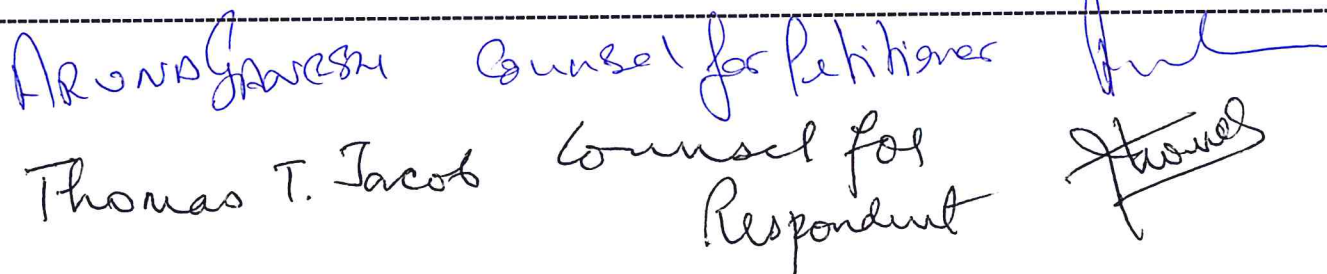 ARUNA GANESH Counsel for Petitioner
Thomas T. Jacob Counsel for
Respondent Thomas